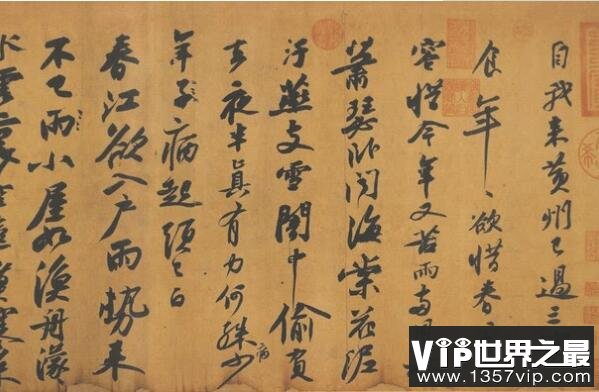 自我来黄州已過三
食年々欲惜春
容惜今年又苦雨兩月
蕭瑟卧聞海棠花泥
汙燕支雪闇中偷負
去夜半真有力何殊少病
年子病起頭已白
春江欲入户雨勢来
不已雨小屋如漁舟濛
水雲裏空
VIP世界之最
www.1357vip.com